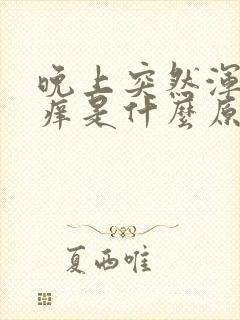 晚上突然渾
癢是什麼原
夏西唯